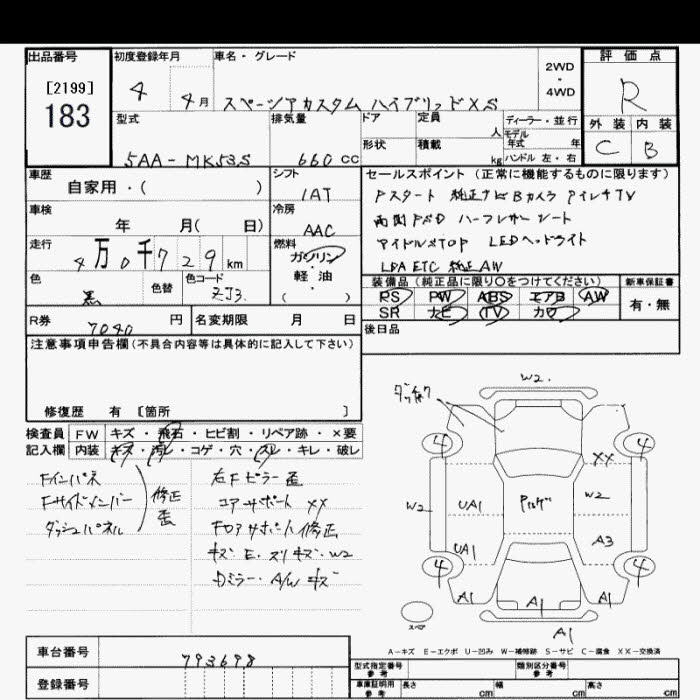 出品番号 初度登録年月 車名・グレード 2WD・4WD 評価点
[2199]
183
4 4月 スペーシアカスタム ハイブリッドXS R
型式 排気量 ドア 定員 人 ディーラー・並行 外装 内装
形状 積載 kg モデル年式 年 C B
5AA-MK53S 660cc ハンドル 左・右
車歴 シフト セールスポイント (正常に機能するものに限ります)
自家用・( ) IAT Pスタート 純正ナビBカメラ TV
車検 冷房 両側PSD
年 月( 日) AAC アイドルSTOP LEDヘッドライト
走行 燃料 ETC 純正AW
4万0千729km ガソリン・軽油・( )
色 色替 色コード 装備品 (純正品に限り○をつけてください) 新車保証書
黒 ZJ3 PS PW ABS エアB AW 有・無
SR ナビ TV カワ
R券 7040 円 名変期限 月 日 後日品
注意事項申告欄 (不具合内容等は具体的に記入して下さい)
修復歴 有 [箇所 ]
検査員 FW キズ・飛石・ヒビ割・リペア跡・×要
記入欄 内装 キズ・汚レ・コゲ・穴・スレ・キレ・破レ
Fインパネ 右Fピラー歪
Fサイドメンバー 修正 コアサポート XX
ダッシュパネル 歪 Fロアサポート修正
キズ・E・スリキズ・W2
Dミラー・A/Wキズ
W2
4 4
XX
W2 UA1 W2
UA1 A3
4 4
A1 A1 A1
スペア A1
A-キズ E-エクボ U-凹み W-補修跡 S-サビ C-腐食 XX-交換済
車台番号 793698
登録番号
型式指定番号 参考 類別区分番号 参考
車庫証明用 参考 長さ cm 幅 cm 高さ cm